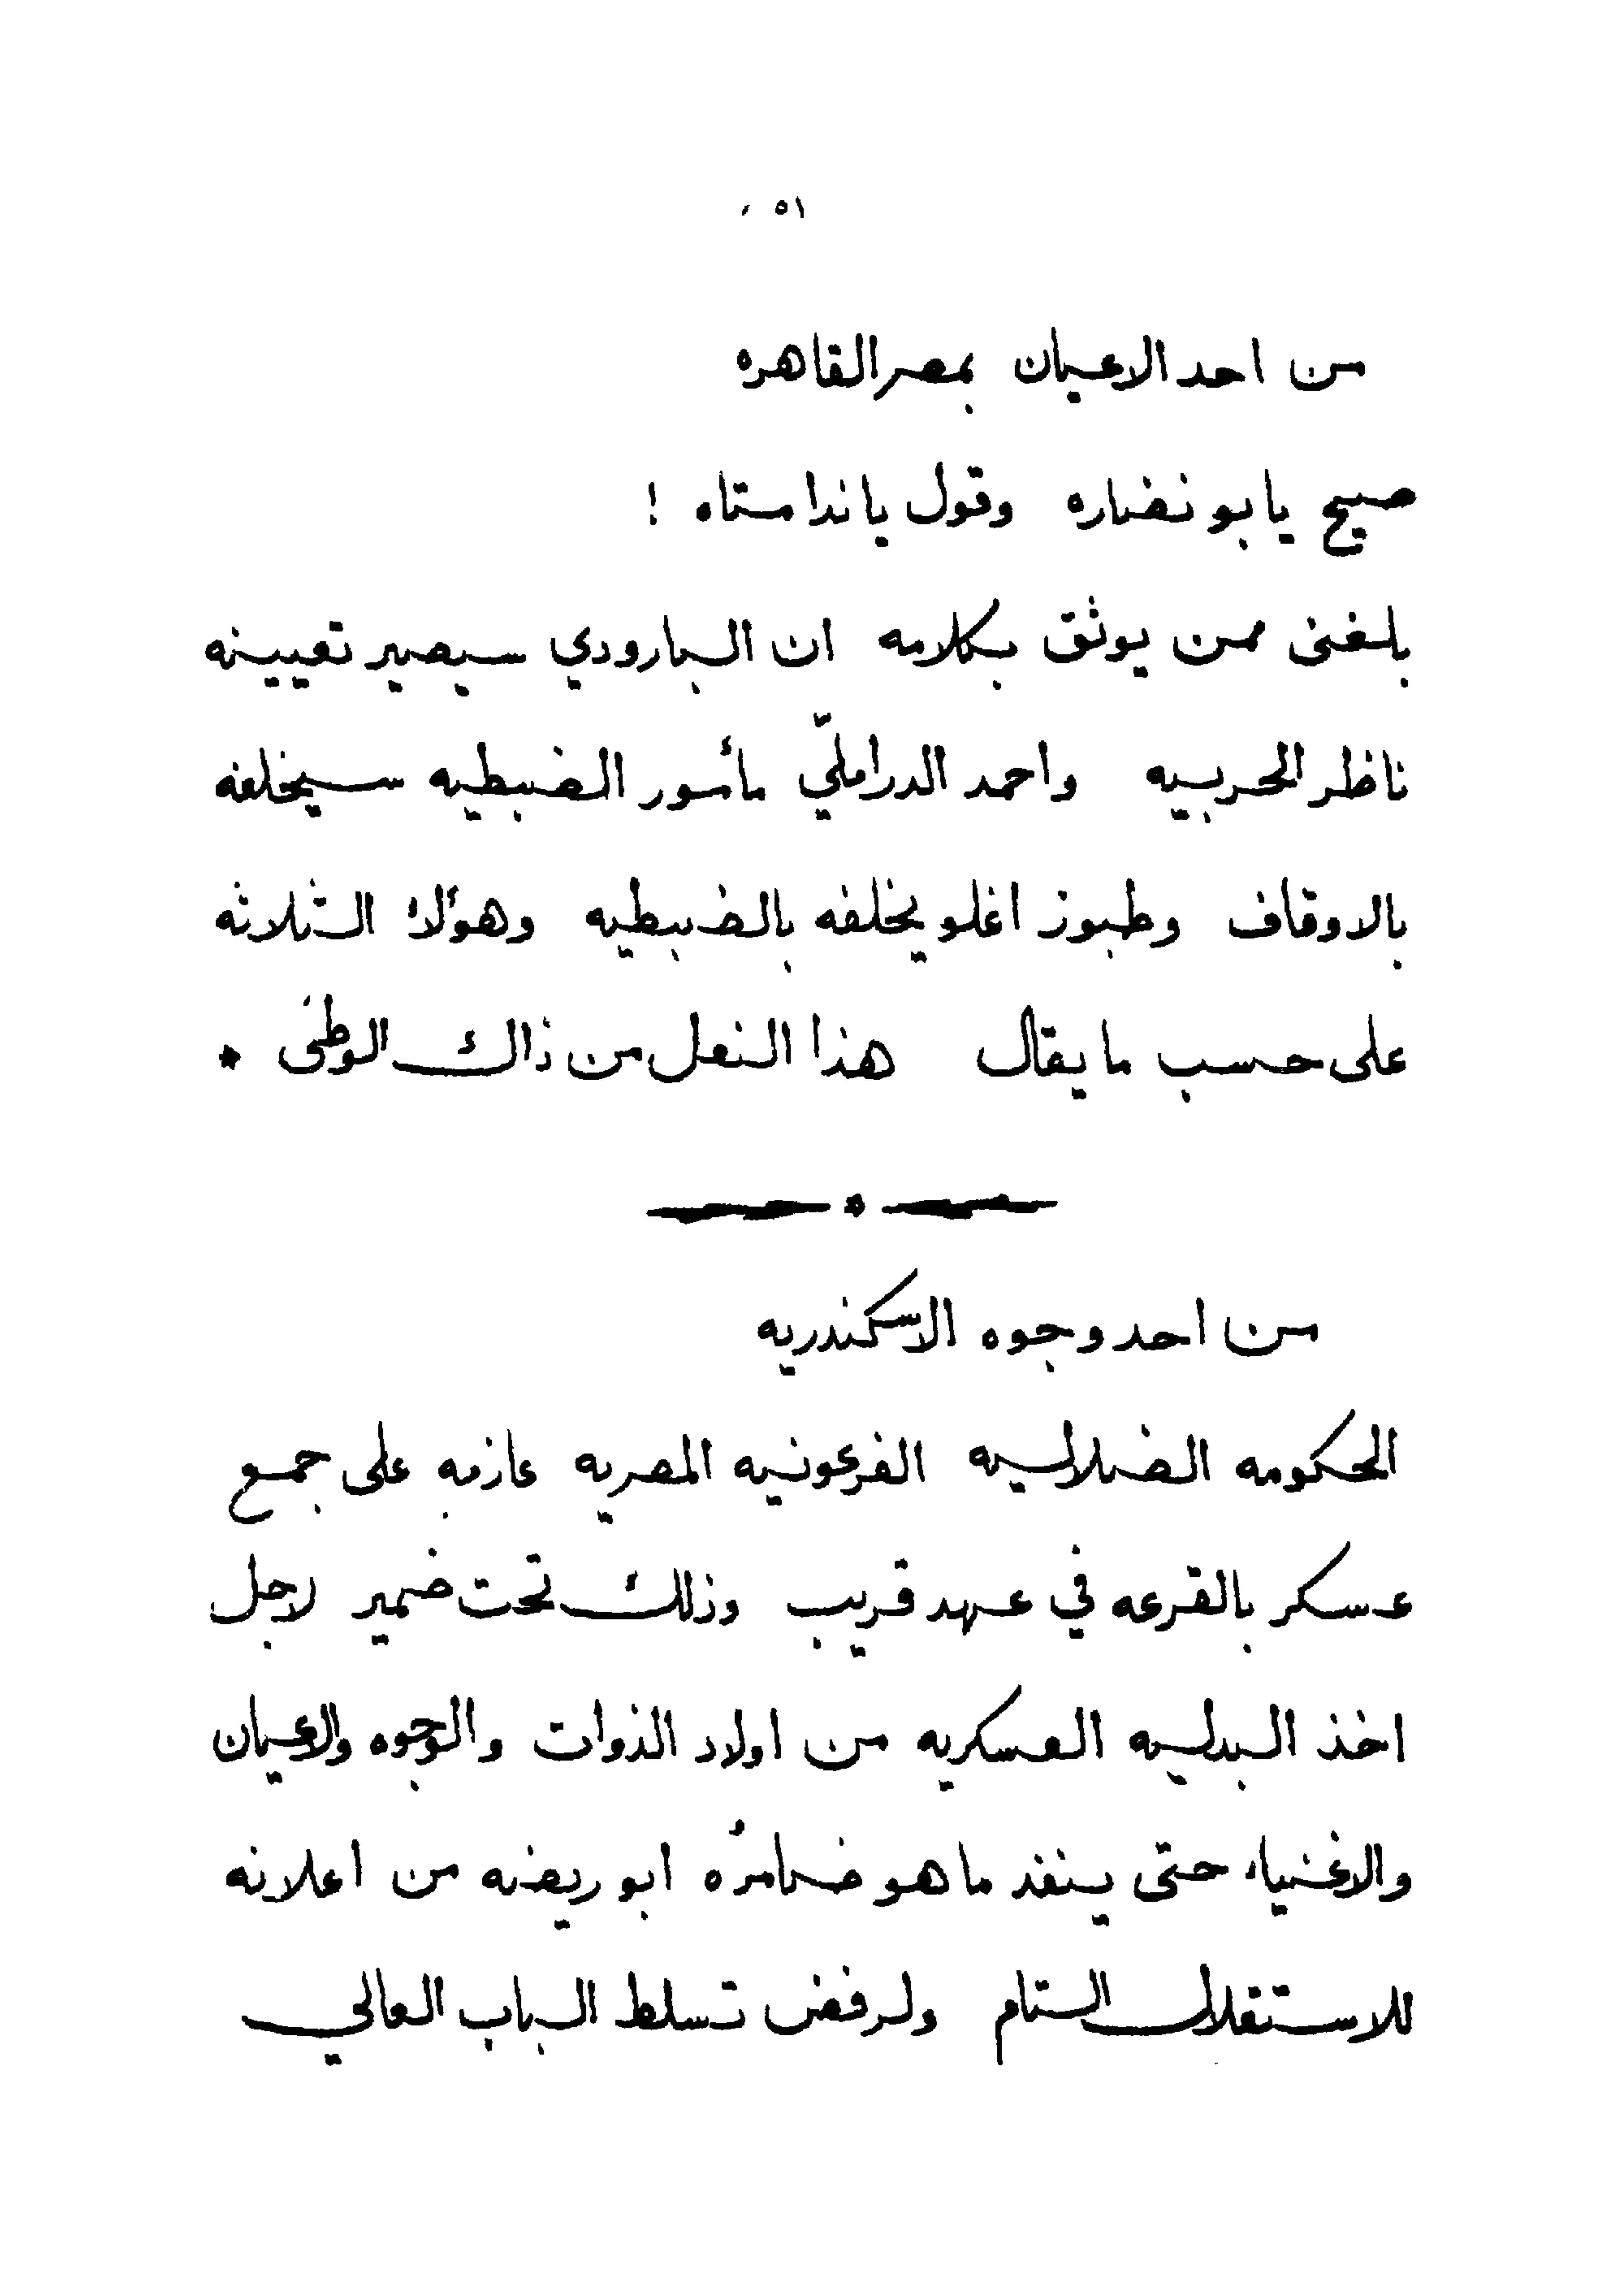 ٥١
من احد الاعيان بمصر القاهره
صيح يا بو نضاره وقول يا ندامتاه !
بلغنى ممن يوثق بكلامه ان البارودي سيصير تعيينه
ناظر الحربيه واحمد الدرامليّ مأمور الضبطيه سيخلفه
بالاوقاف وطبوز اغلو يخلفه بالضبطيه وهؤلاء الثلاثه
على حسب ما يقال هذا النعل من ذاك الوطى *
من احد وجوه الاسكندريه
الحكومه الضلاليه الفرعونيه المصريه عازمه على جمع
عسكر بالقرعه في عهد قريب وذلك تحت ضمير لاجل
اخذ البدليه العسكريه من اولاد الذوات والوجوه والاعيان
والاغنياء حتى ينفذ ما هو ضامرُه ابو ريضه من اعلانه
للاستقلال التام ولرفض تسلط الباب العالي